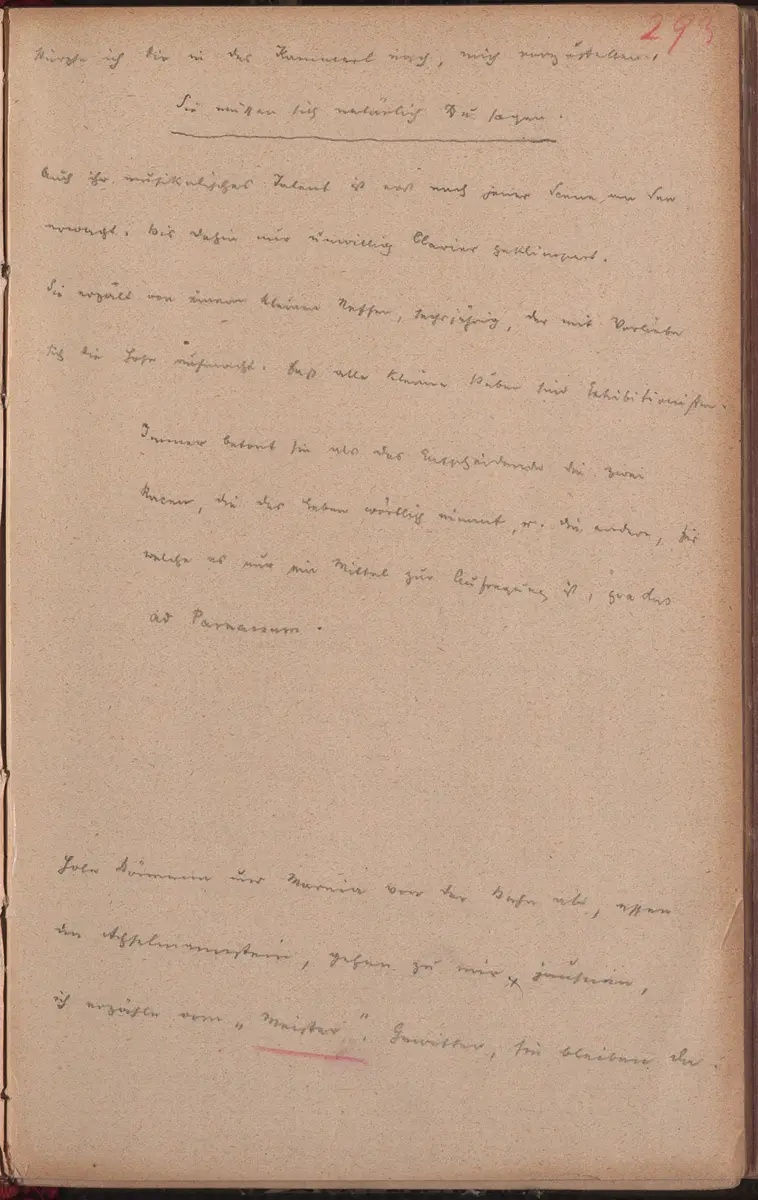 293
stürzte ich Dir in das Kammerl nach, mich vorzustellen.
Sie müssen sich natürlich Du sagen.
Auch ihr musikalisches Talent ist erst nach jener Scene
erwacht. Bis dahin nur unwillig Clavier geklimpert.
Sie erzält von einem kleinen Neffen, sechsjährig, der mit Vorliebe
sich die Hose aufmacht. Daß alle kleinen Buben sind Exhibitionisten.
Immer betont sie als das Entscheidende die zwei
Racen, die das Leben wörtlich nimmt, u. die andere, für
welche es nur ein Mittel zur Aufregung ist, gradus
ad Parnassum.
Hole und von der Bahn ab, essen
gehen zu mir, jausnen,
ich erzähle vom „Meister“. Gewitter, sie bleiben da.